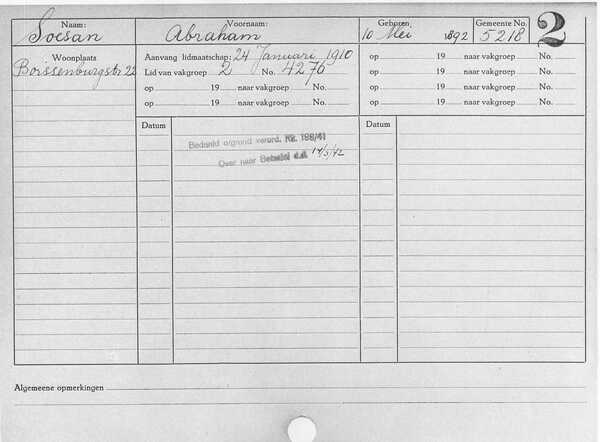 Naam: Voornaam: Geboren Gemeente No. 2
Soesan Abraham 10 Mei 1892 5218
Woonplaats Aanvang lidmaatschap: 24 Januari 1910 op 19 naar vakgroep No.
Borssenburgstr 22 Lid van vakgroep 2 No. 4276 op 19 naar vakgroep No.
op 19 naar vakgroep No. op 19 naar vakgroep No.
op 19 naar vakgroep No. op 19 naar vakgroep No.
Datum Datum
Bedankt o/grond verord. No. 199/41
Over naar d.d. 14/5/42
Algemeene opmerkingen